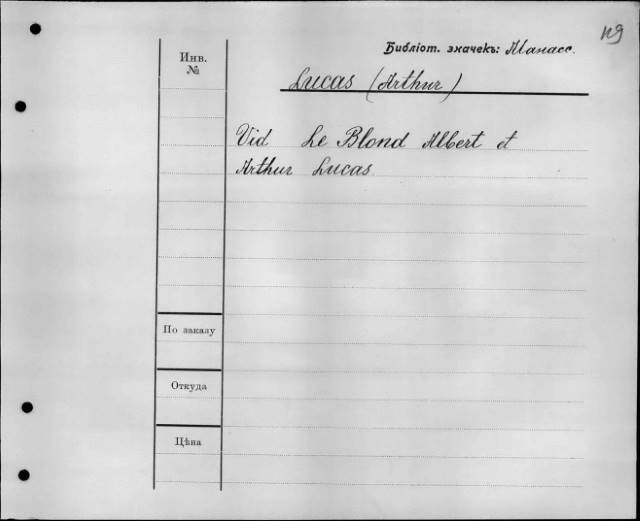 119
Библіот. значекъ: Манасс.
Инв.
№
Lucas (Arthur)
Vid Le Blond Albert et
Arthur Lucas
По заказу
Откуда
Цѣна